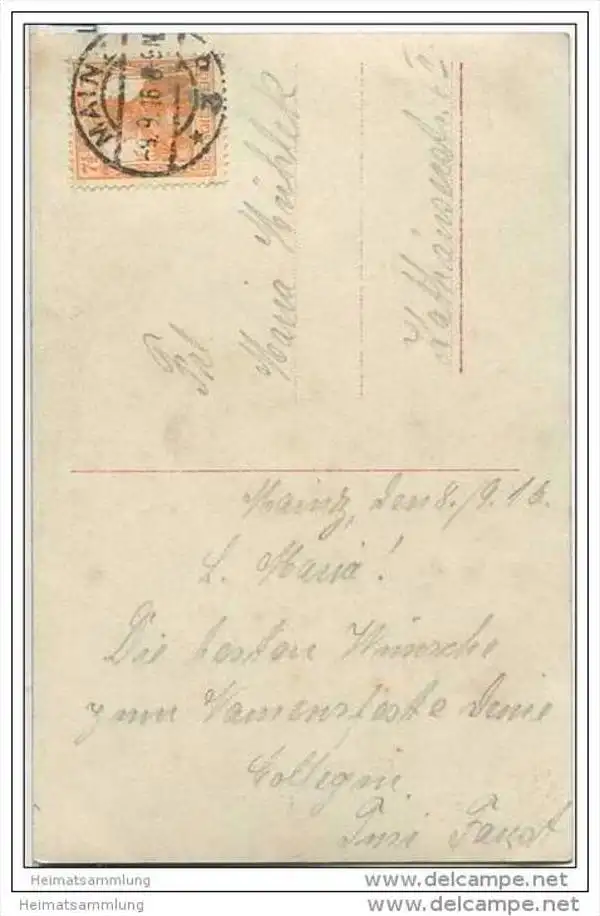 MAIN
-9.9.16.
7½
Frl
Maria Mühlek
Mainz, den 8./9.16.
L. Maria!
Die besten Wünsche
zum Namensfeste Deine
Collegin
Faust
Heimatsammlung
delcampe.net
Heimatsammlung
delcampe.net